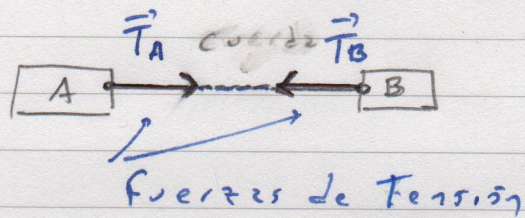 T⃗A cuerda T⃗B
A B
Fuerzas de Tensión